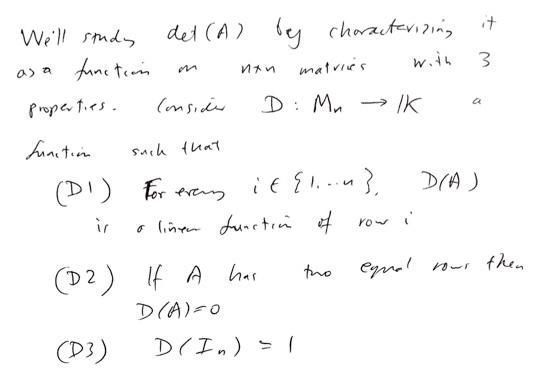 We'll study det(A) by characterizing it
as a function on n×n matrices with 3
properties. Consider D : Mn → IK a
function such that
(D1) For every i ∈ {1...n}, D(A)
is a linear function of row i
(D2) If A has two equal rows then
D(A)=0
(D3) D(In) = 1